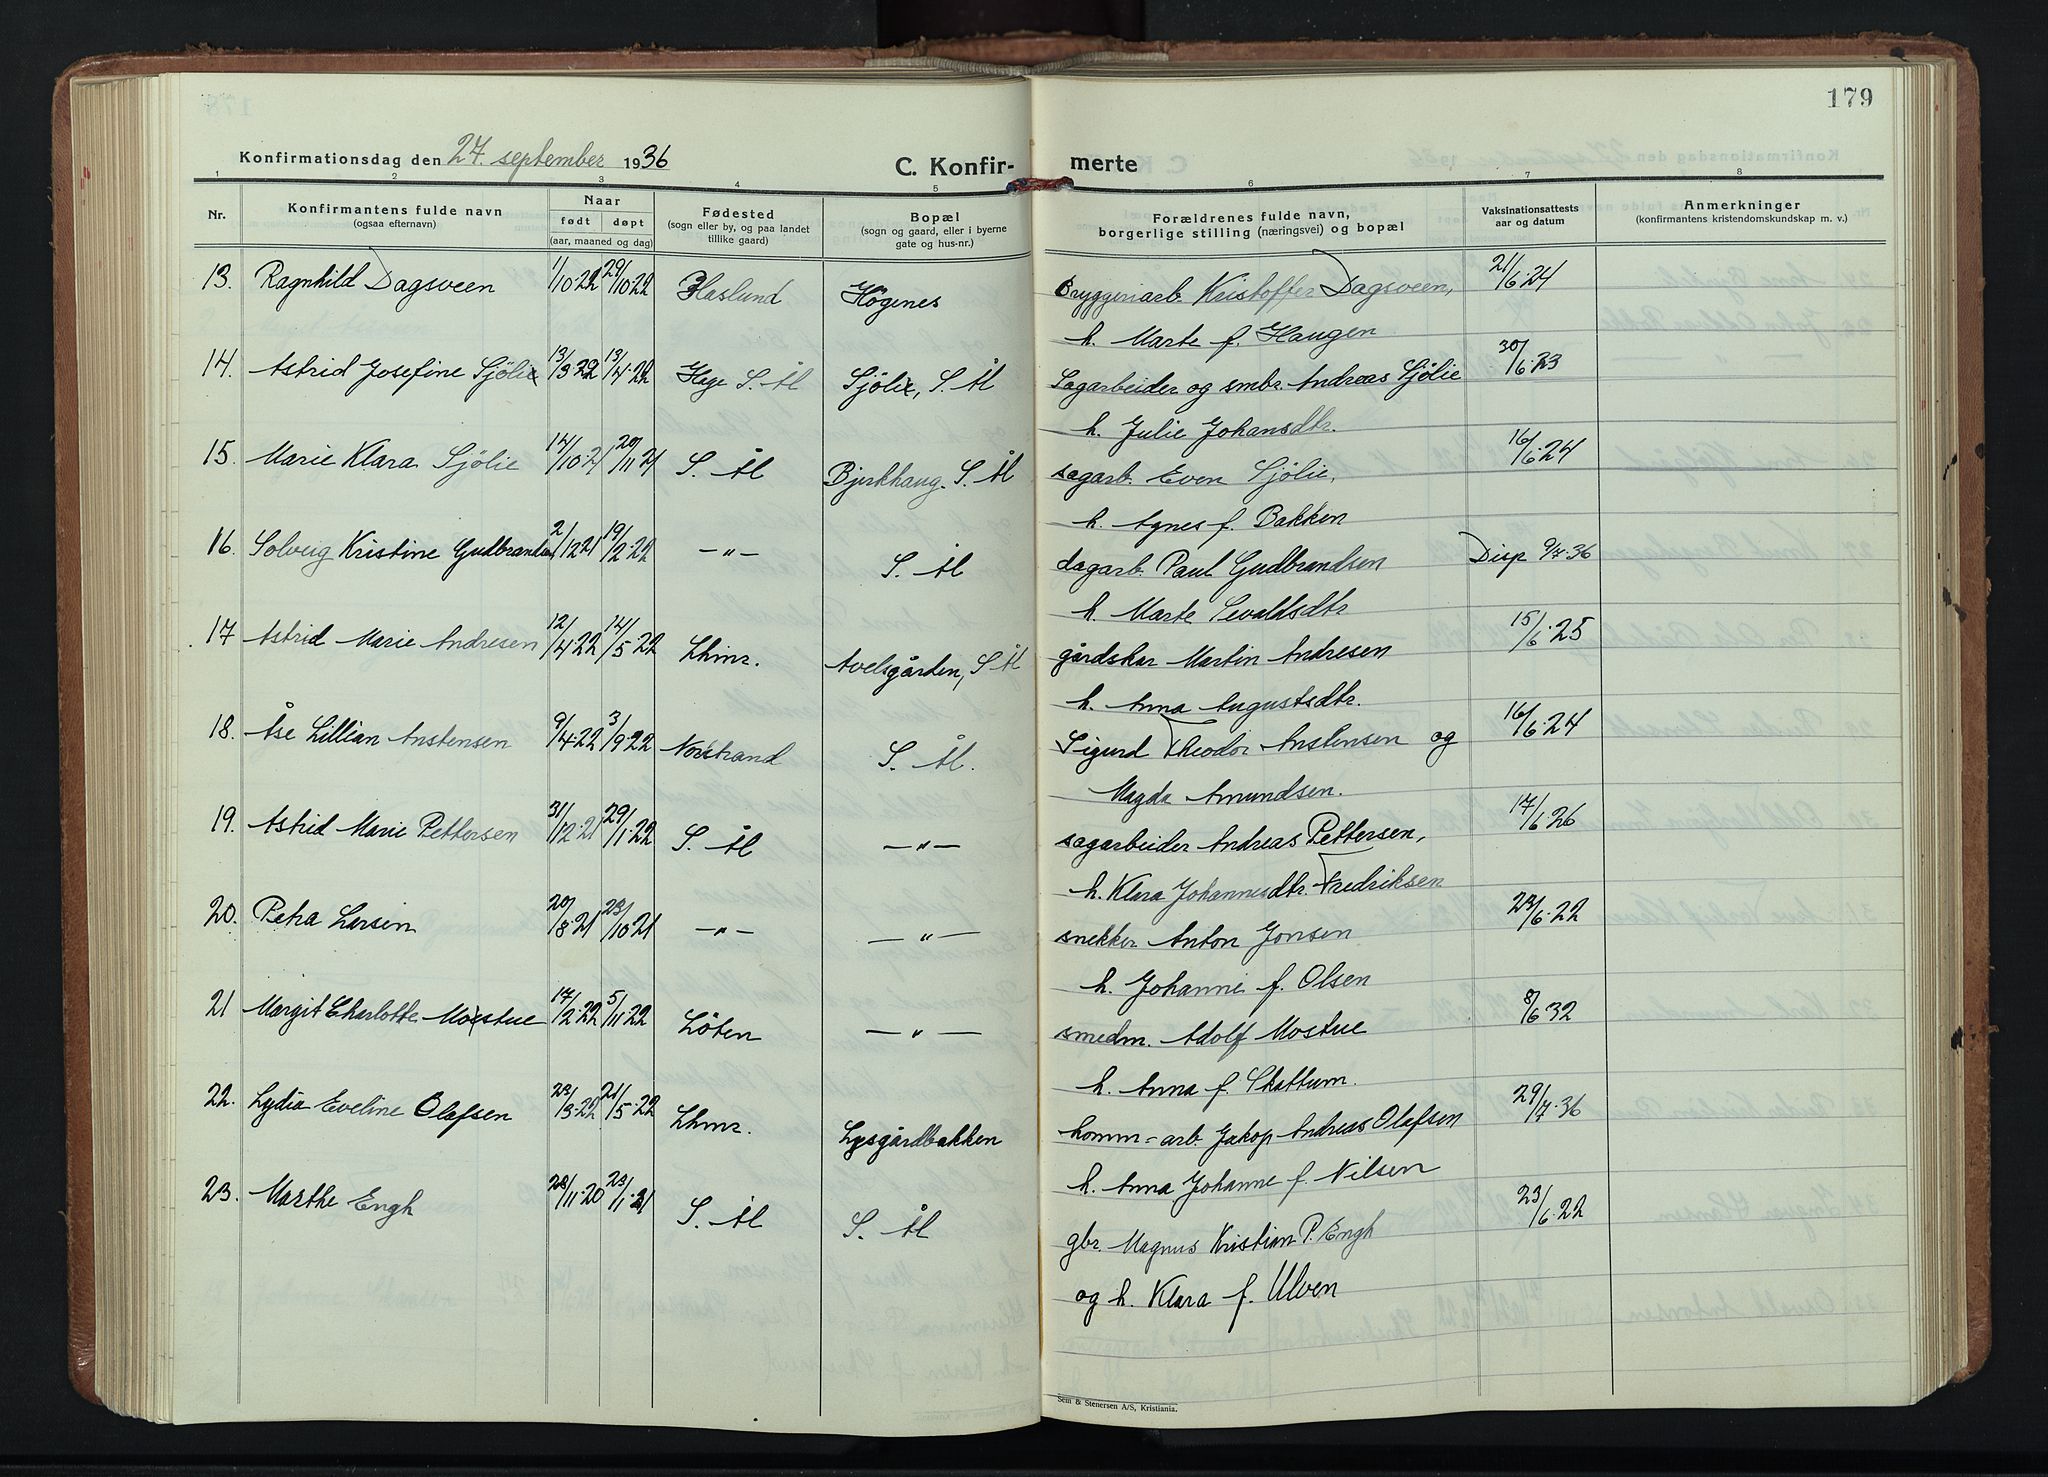 179
Konfirmationsdag den 27. september 1936
C. Konfirmerte
1 2 3 4 5 6 7 8
Nr. Konfirmantens fulde navn (ogsaa efternavn) Naar født døpt (aar, maaned og dag) Fødested (sogn eller by, og paa landet tillike gaard) Bopæl (sogn og gaard, eller i byerne gate og hus-nr.) Forældrenes fulde navn, borgerlige stilling (næringsvei) og bopæl Vaksinationsattests aar og datum Anmerkninger (konfirmantens kristendomskundskap m. v.)
13. Ragnhild Dagsveen 1/10·22 29/10·22 Haslund Högenes Bryggeriarb. Kristoffer Dagsveen, 21/6·24
h. Marte f. Haugen
14. Astrid Josefine Sjölie 13/3·22 13/4·22 Hage S. Ål Sjölie, S. Ål Sagarbeider og smbr. Andreas Sjölie 30/6·23
h. Julie Johansdtr.
15. Marie Klara Sjölie 14/10·21 20/11·21 S. Ål Bjerkhaug. S. Ål sagarb. Even Sjölie, 16/6·24
h. Agnes f. Bakken
16. Solveig Kristine Gudbrandsen 2/12·21 19/2·22 —"— S. Ål dagarb. Paul Gudbrandsen Disp 9/7·36
h. Marte Sevaldsdtr
17 Astrid Marie Andresen 12/4·22 14/5·22 Lhmr. Avelsgården, S. Ål gårdskar Martin Andresen 15/6·25
h. Anna Augustsdtr.
18. Åse Lillian Anstensen 9/4·22 3/9·22 Nordstrand S. Ål. Sigurd Theodor Anstensen og 16/6·24
Magda Amundsen.
19. Astrid Marie Pettersen 31/12·21 29/1·22 S. Ål —"— sagarbeider Andreas Pettersen, 17/6·26
h. Klara Johannesdtr. Fredriksen
20. Petra Larsen 20/8·21 23/10·21 —"— —"— snekker Anton Jonsen 23/6·22
h. Johanne f. Olsen
21 Margit Charlotte Mostue 17/2·22 5/11·22 Löten —"— smedm. Adolf Mostue 8/6·32
h. Anna f. Skattum.
22. Lydia Eveline Olafsen 23/3·22 21/5·22 Lhmr. Lysgårdbakken komm-arb. Jakop Andreas Olafsen 29/7·36
h. Anna Johanne f. Nilsen
23. Marthe Engh 28/11·20 23/1·21 S. Ål S. Ål gbr. Magnus Kristian P. Engh 23/6·22
og h. Klara f. Ulven
Sem & Stenersen A/S, Kristiania.